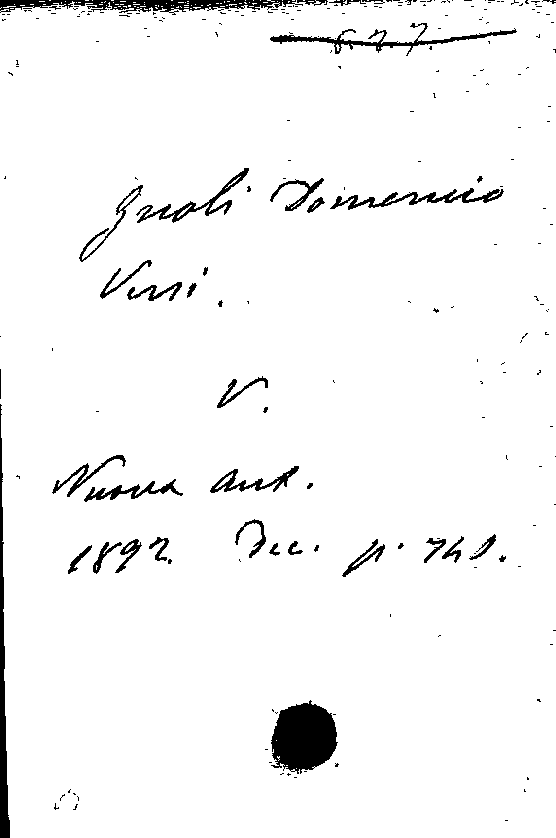 Gnoli Domenico
Versi.
V.
Nuova Ant.
1892. Dec. p.